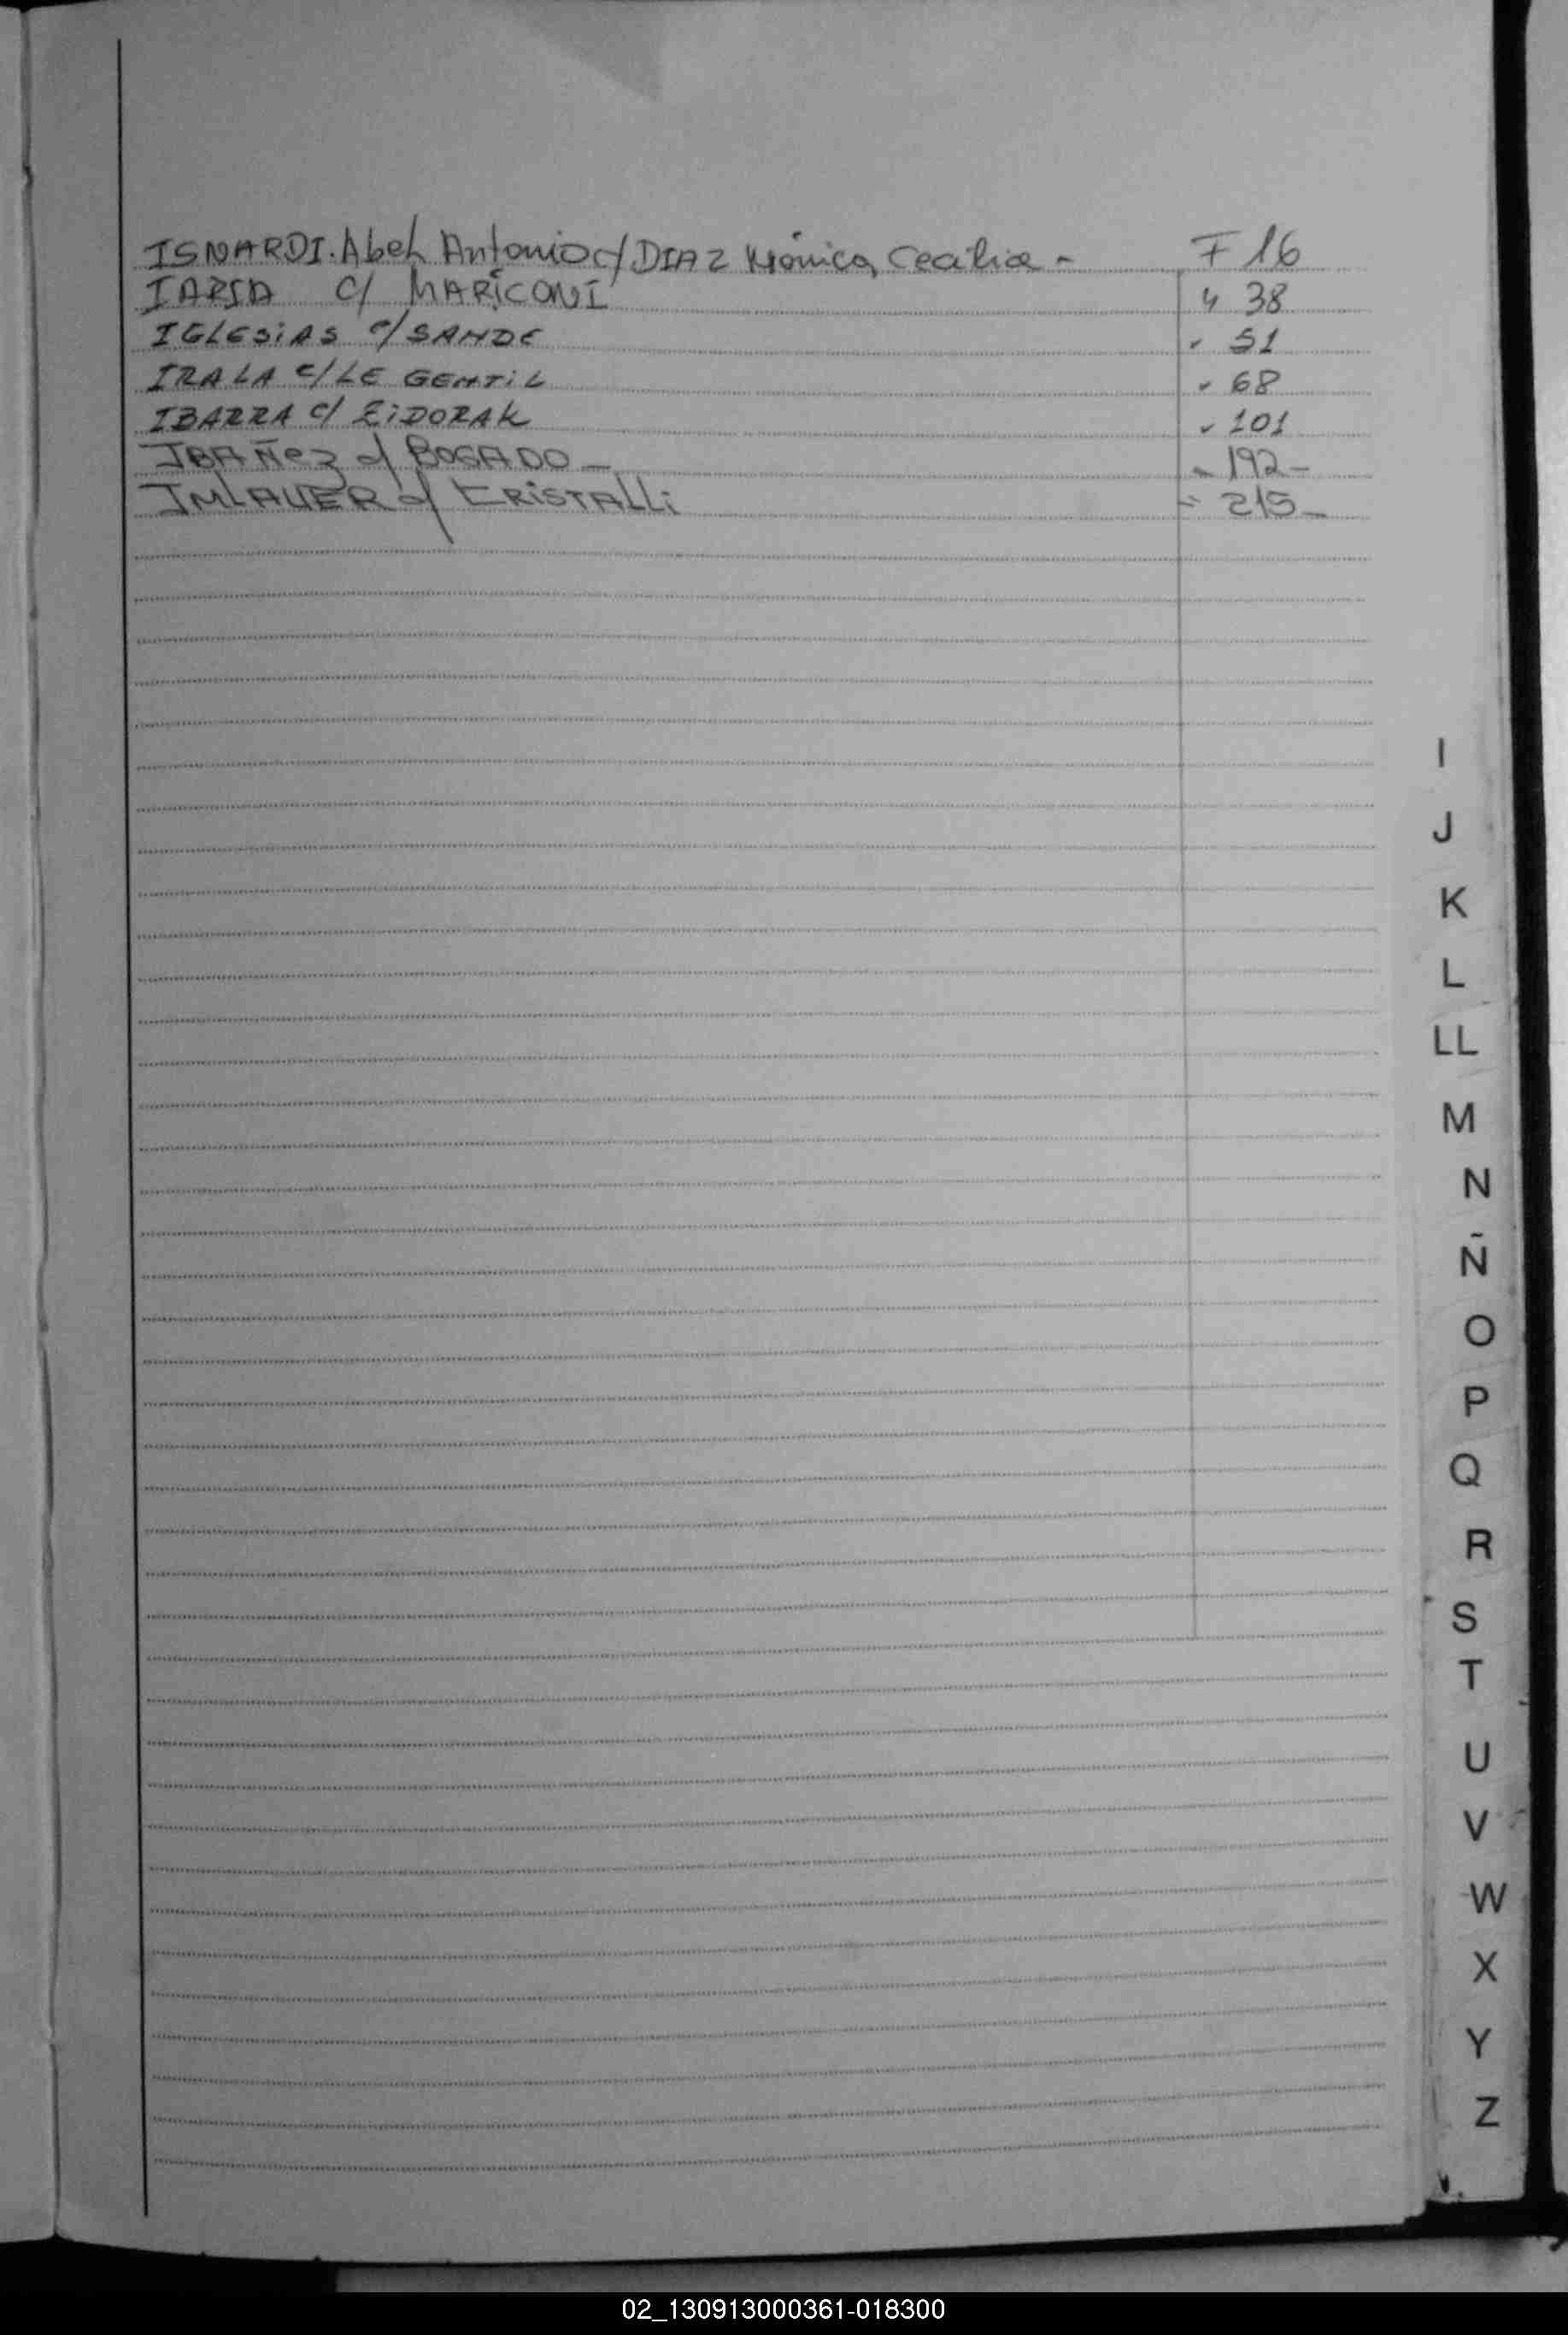 ISNARDI. Abel Antonio c/ DIAZ Mónica Cecilia - F 16
IARIA c/ MARICONI " 38
IGLESiAS c/ SANDE " 51
IRALA c/ LE GENTiL " 68
IBARRA c/ ZiDORAK " 101
IBAÑez c/ BOGADO - " 192 -
IMLAUER c/ CRiSTALLi " 215 -
I
J
K
L
LL
M
N
Ñ
O
P
Q
R
S
T
U
V
W
X
Y
Z
02_130913000361-018300